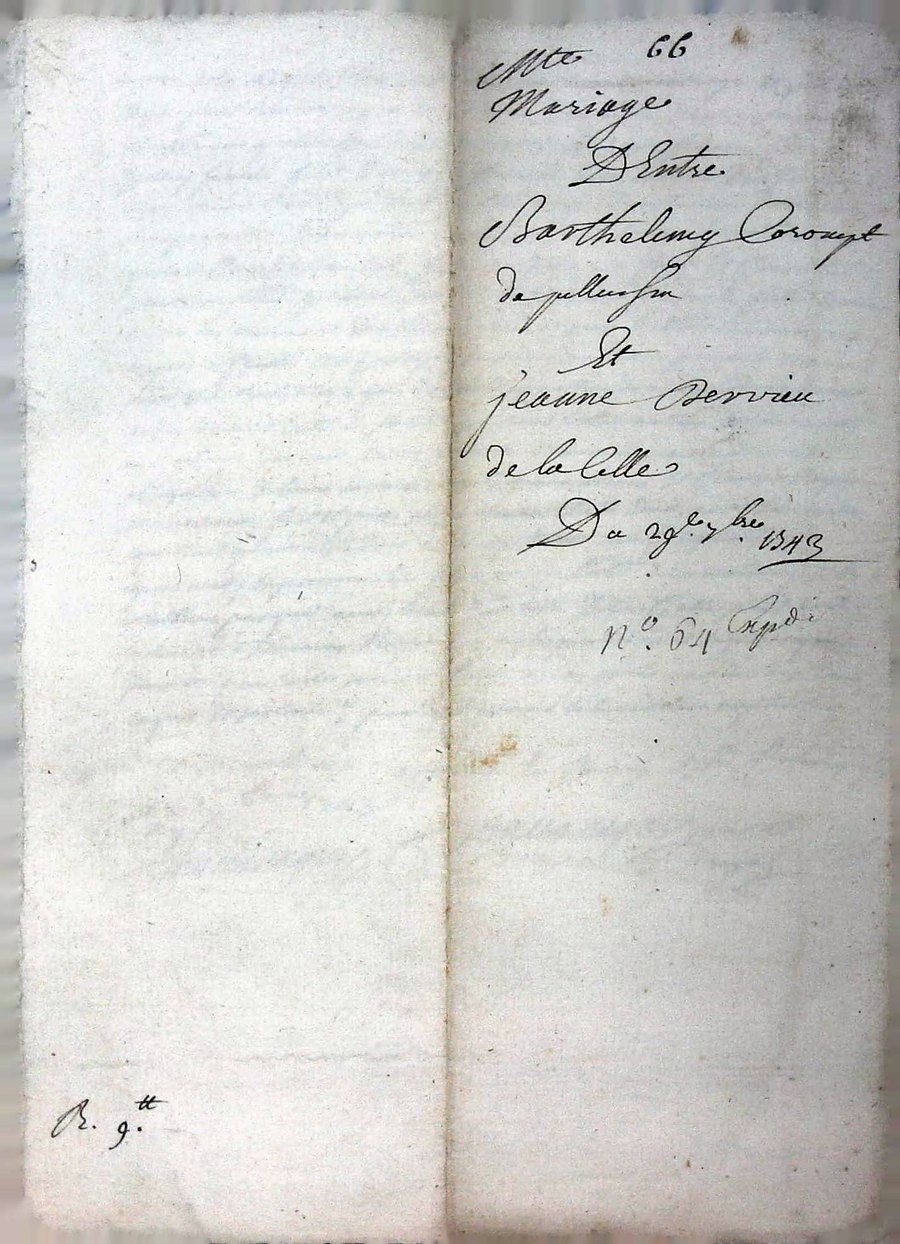 Mte 66
Mariage
D'Entre
Barthelemy Corompt
de pellussin
Et
jeanne Dervieu
de la Celle
Du 29e 7bre 1743
N°. 64 Expdi
R. 9.tt